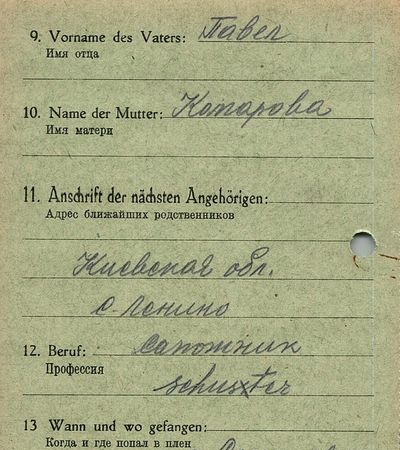 9. Vorname des Vaters: Павел
Имя отца
10. Name der Mutter: Комарова
Имя матери
11. Anschrift der nächsten Angehörigen:
Адрес ближайших родственников
Киевская обл.
с. Ленино
12. Beruf: сапожник
Профессия
schuster
13 Wann und wo gefangen:
Когда и где попал в плен